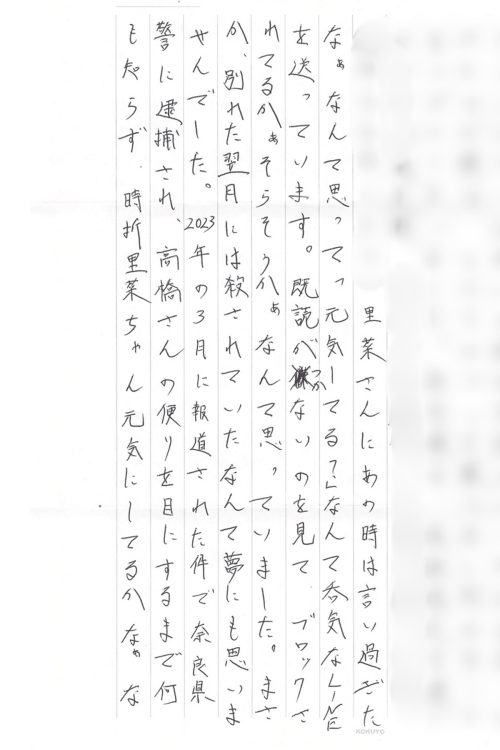 里菜さんにあの時は言い過ぎた
なぁなんて思ってっ元気してる？」なんて呑気なLINE
を送っています。既読がつかないのを見て、ブロックさ
れてるかぁそらそうかぁなんて思っていました。まさ
か、別れた翌月には殺されていたなんて夢にも思いま
せんでした。2023年の3月に報道された件で奈良県
警に逮捕され、高橋さんの便りを目にするまで何
も知らず、時折里菜ちゃん元気にしてるかなぁな
KOKUYO